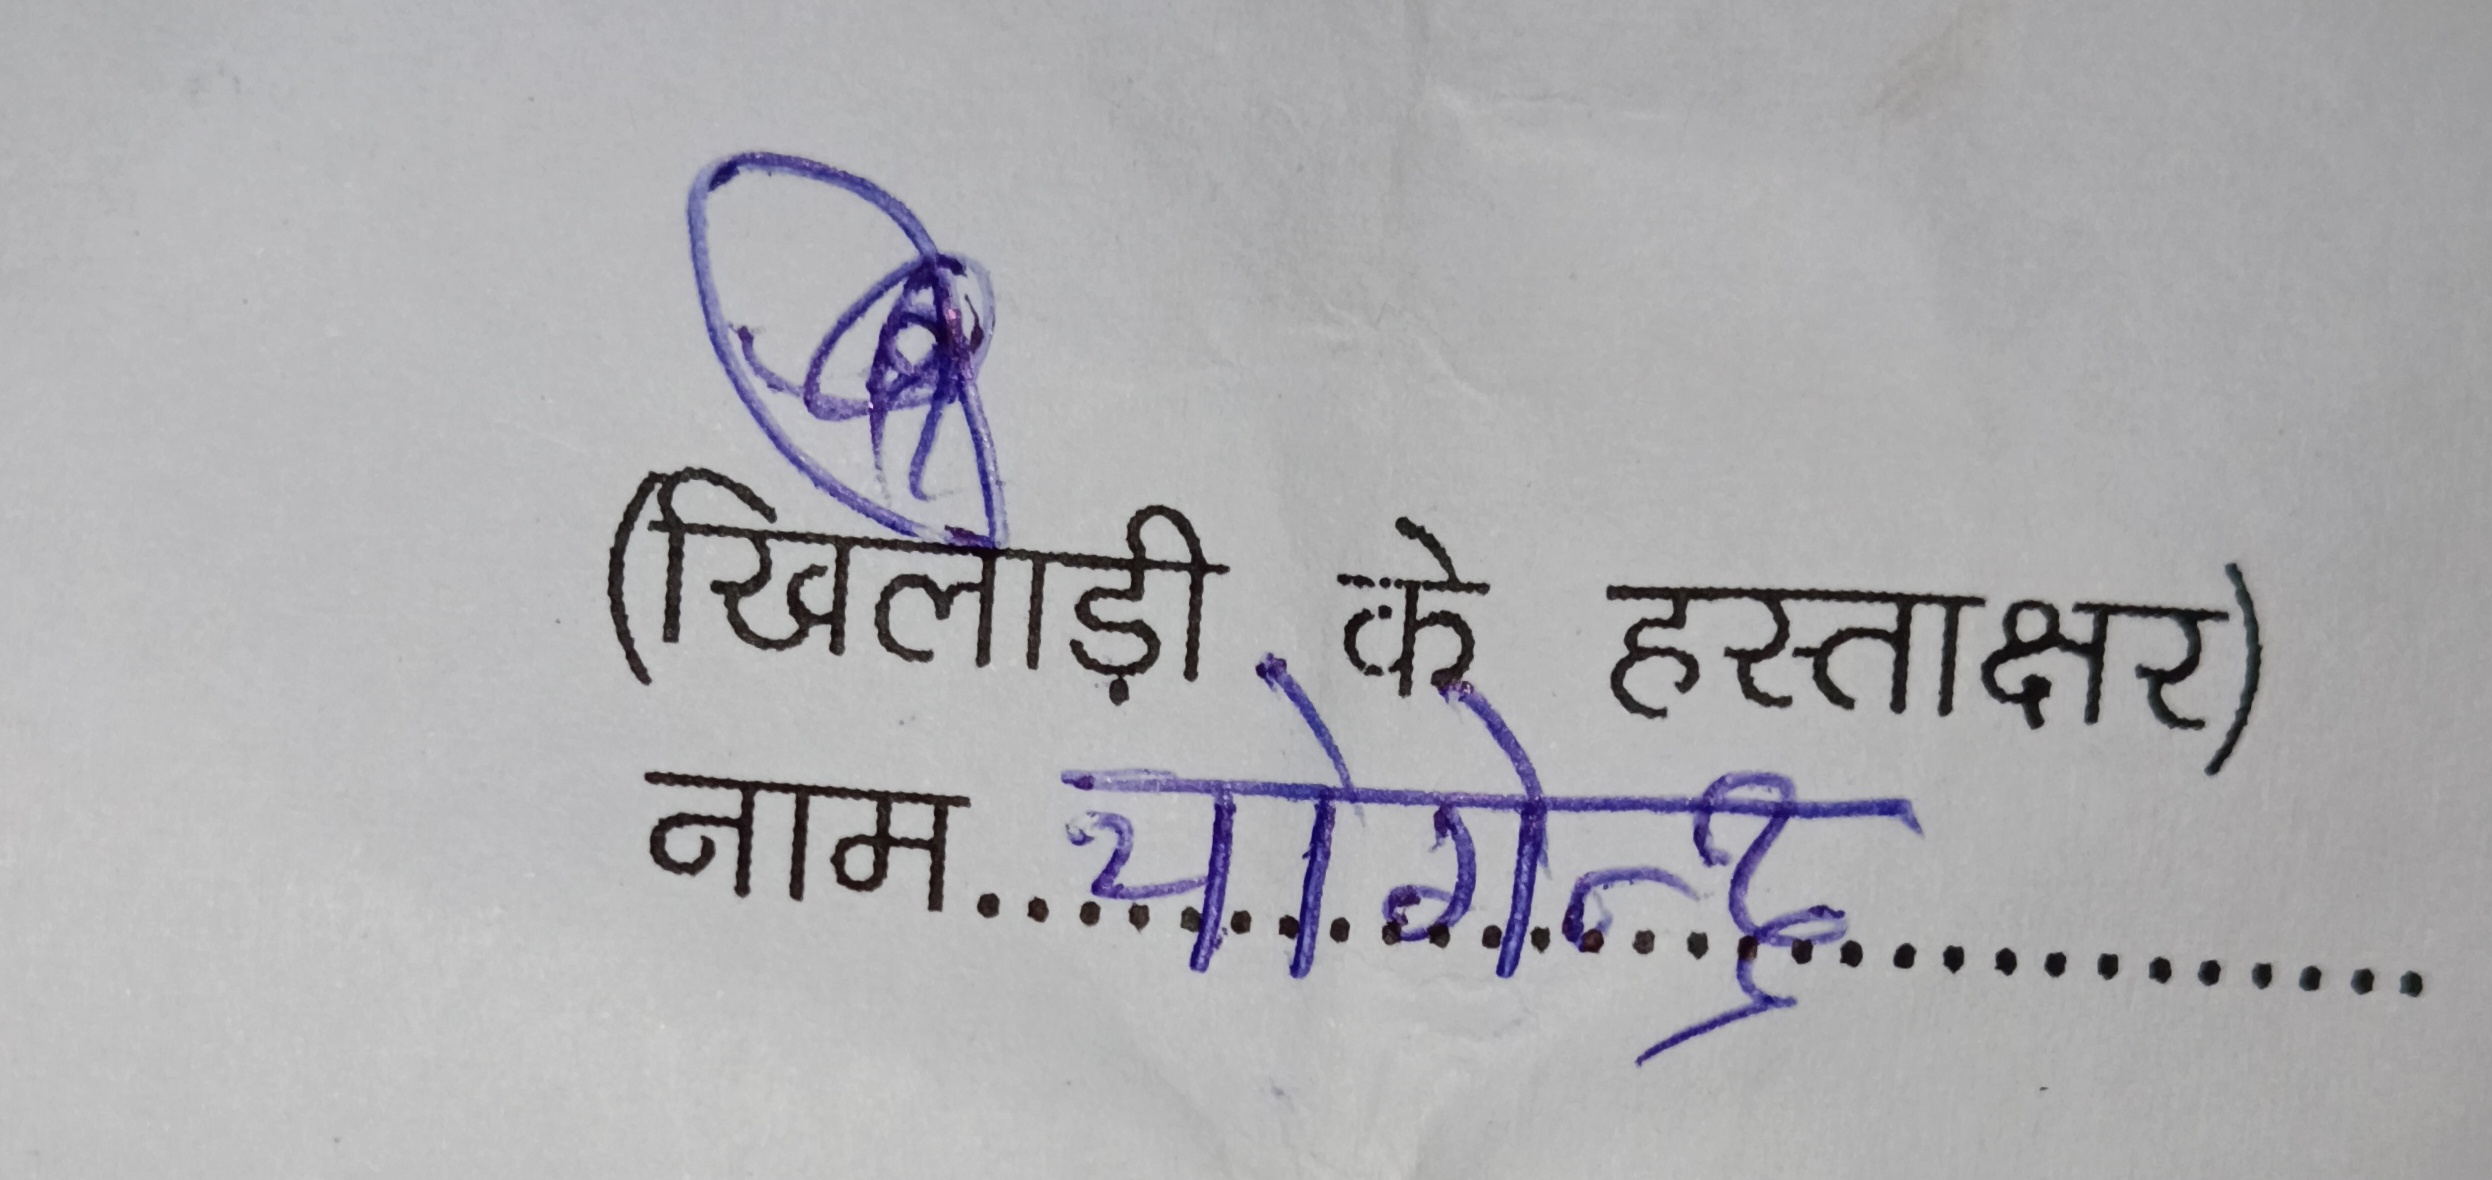 (खिलाड़ी के हस्ताक्षर)
नाम.....योगेन्द्र..........